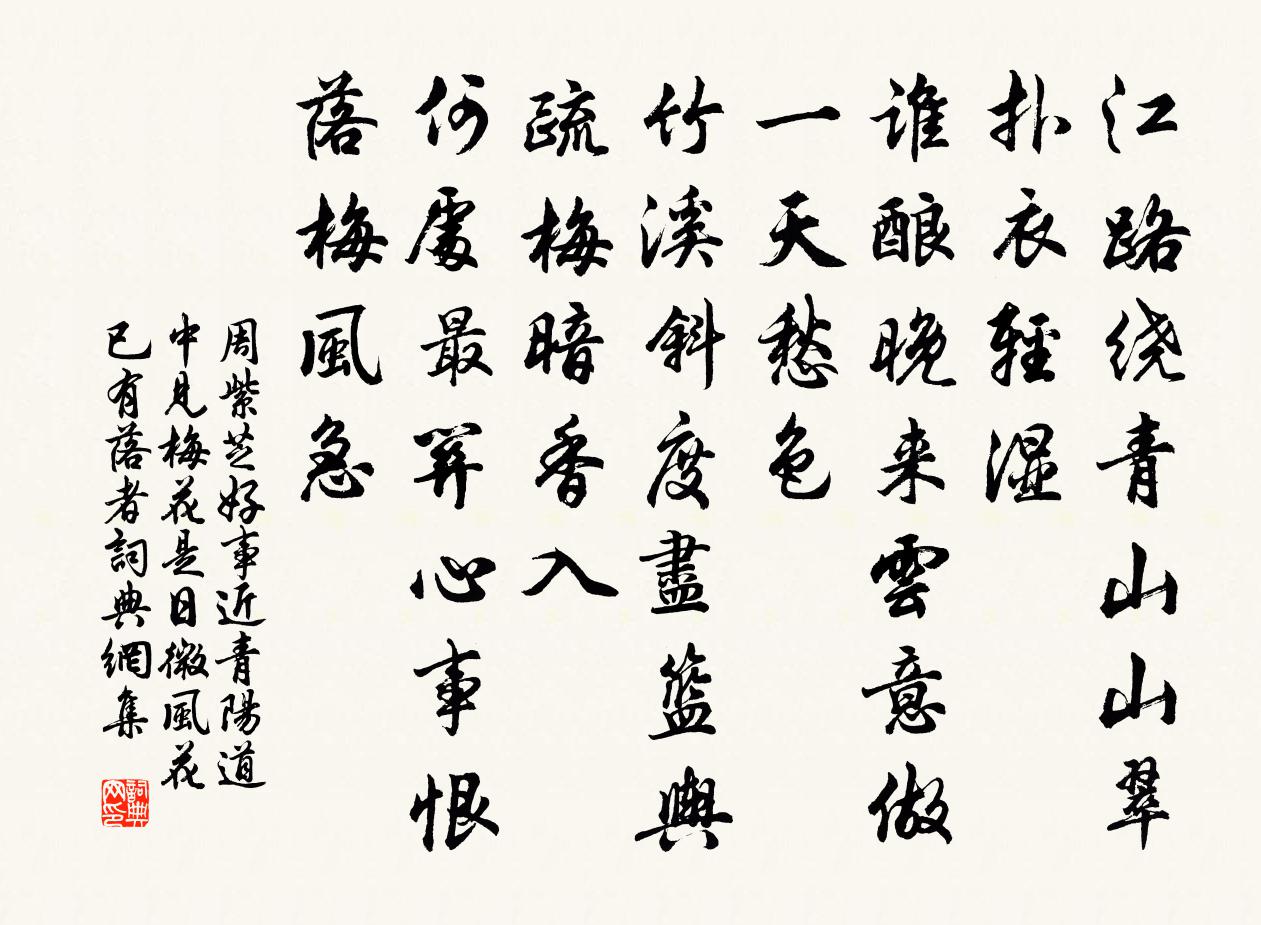 江路绕青山山翠
扑衣輕湿
谁酿晚来雲意做
一天愁色
竹溪斜度盡籃輿
疏梅暗香入
何處最関心事恨
落梅風急
周紫芝好事近青陽道
中見梅花是日微風花
已有落者詞典網集
詞典
网印